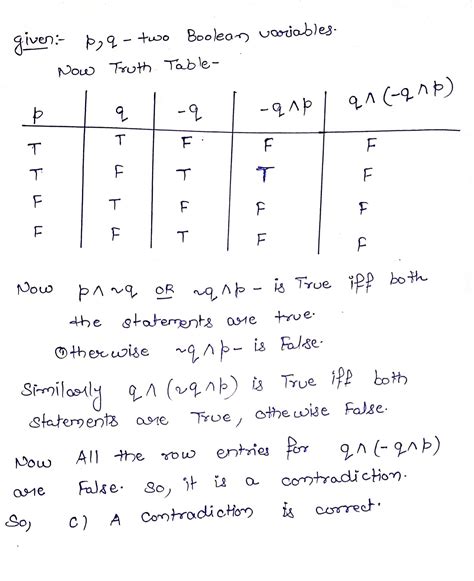 given:- p, q - two Boolean variables.
Now Truth Table-
p | q | -q | -q∧p | q∧(-q∧p)
T | T | F | F | F
T | F | T | T | F
F | T | F | F | F
F | F | T | F | F
Now p∧~q OR ~q∧p - is True iff both
the statements are true.
Otherwise ~q∧p - is False.
Similarly q∧(~q∧p) is True iff both
statements are True, othewise False.
Now All the row entries for q∧(-q∧p)
are False. So, it is a contradiction.
So, c) A contradiction is correct.